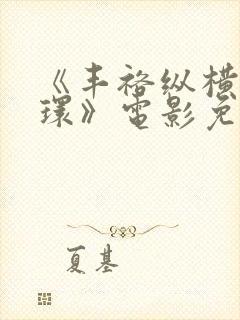 《丰裕纵横
环》电影免
夏基